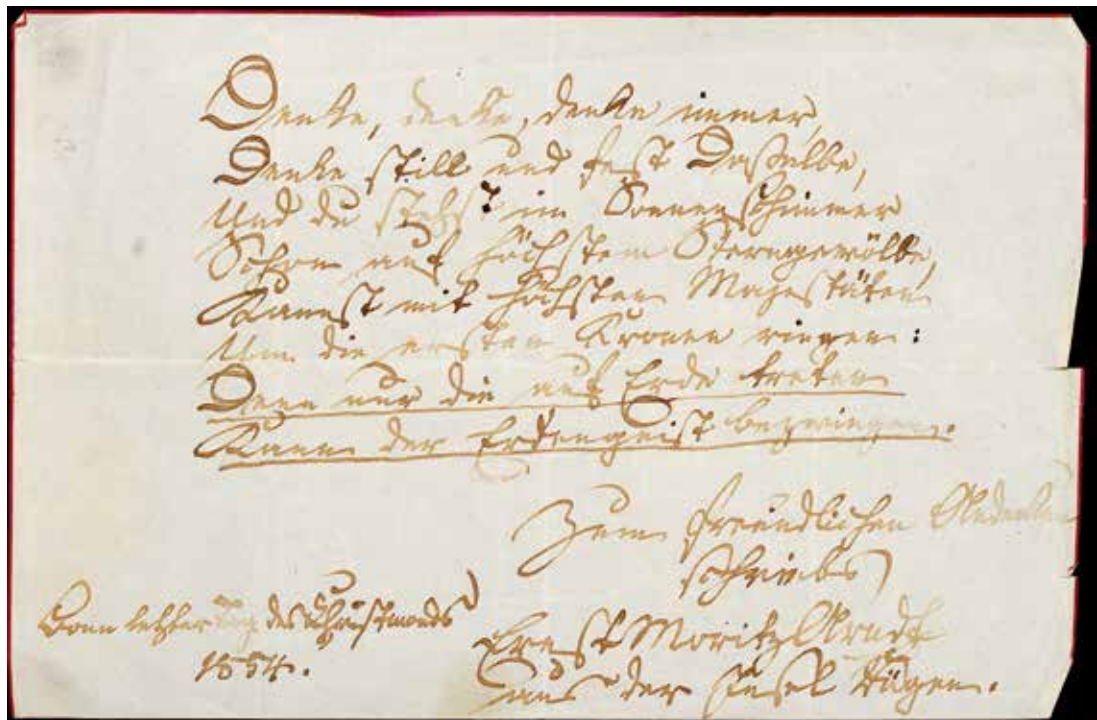 Denke, denke, denke immer,
Denke still und fest Dasselbe,
Und du stehst im Sonnenschimmer
Schon auf höchstem Sterngewölbe,
Kannst mit höchsten Majestäten
Um die ersten Kronen ringen:
Denn nur die auf Erde treten
Kann der Erdengeist bezwingen.
Zum freundlichen Andenken
schriebs
Ernst Moritz Arndt
aus der Insel Rügen.
Bonn letzter Tag des Christmonds
1854.